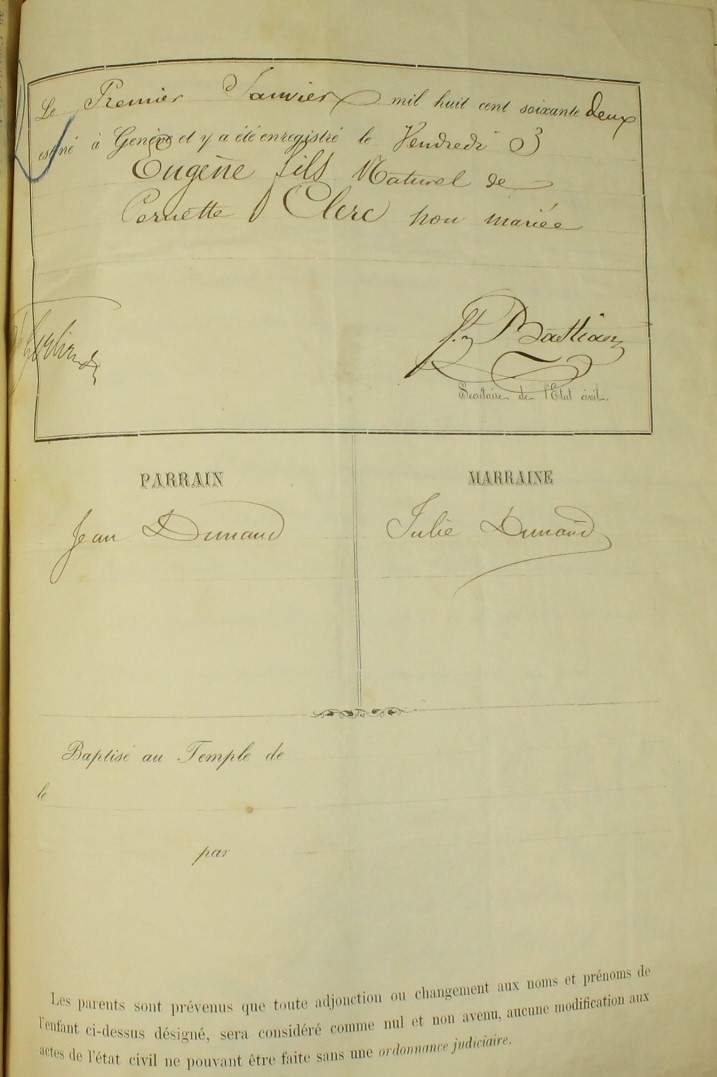 Le Premier Janvier mil huit cent soixante deux
est né à Genève et y a été enregistré le Vendredi 3
Eugène fils Naturel de
Pernette Clerc non mariée
Bastian
Secrétaire de l'Etat civil.
PARRAIN
MARRAINE
Jean Dunand
Julie Dunand
Baptisé au Temple de
le
par
Les parents sont prévenus que toute adjonction ou changement aux noms et prénoms de
l'enfant ci-dessus désigné, sera considéré comme nul et non avenu, aucune modification aux
actes de l'état civil ne pouvant être faite sans une ordonnance judiciaire.